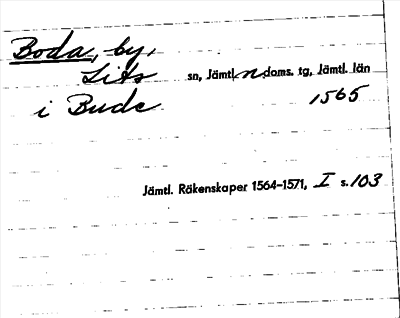 Boda, by,
Lits sn, Jämtl. n doms. tg, Jämtl. län
i Bude 1565
Jämtl. Räkenskaper 1564–1571, I s. 103